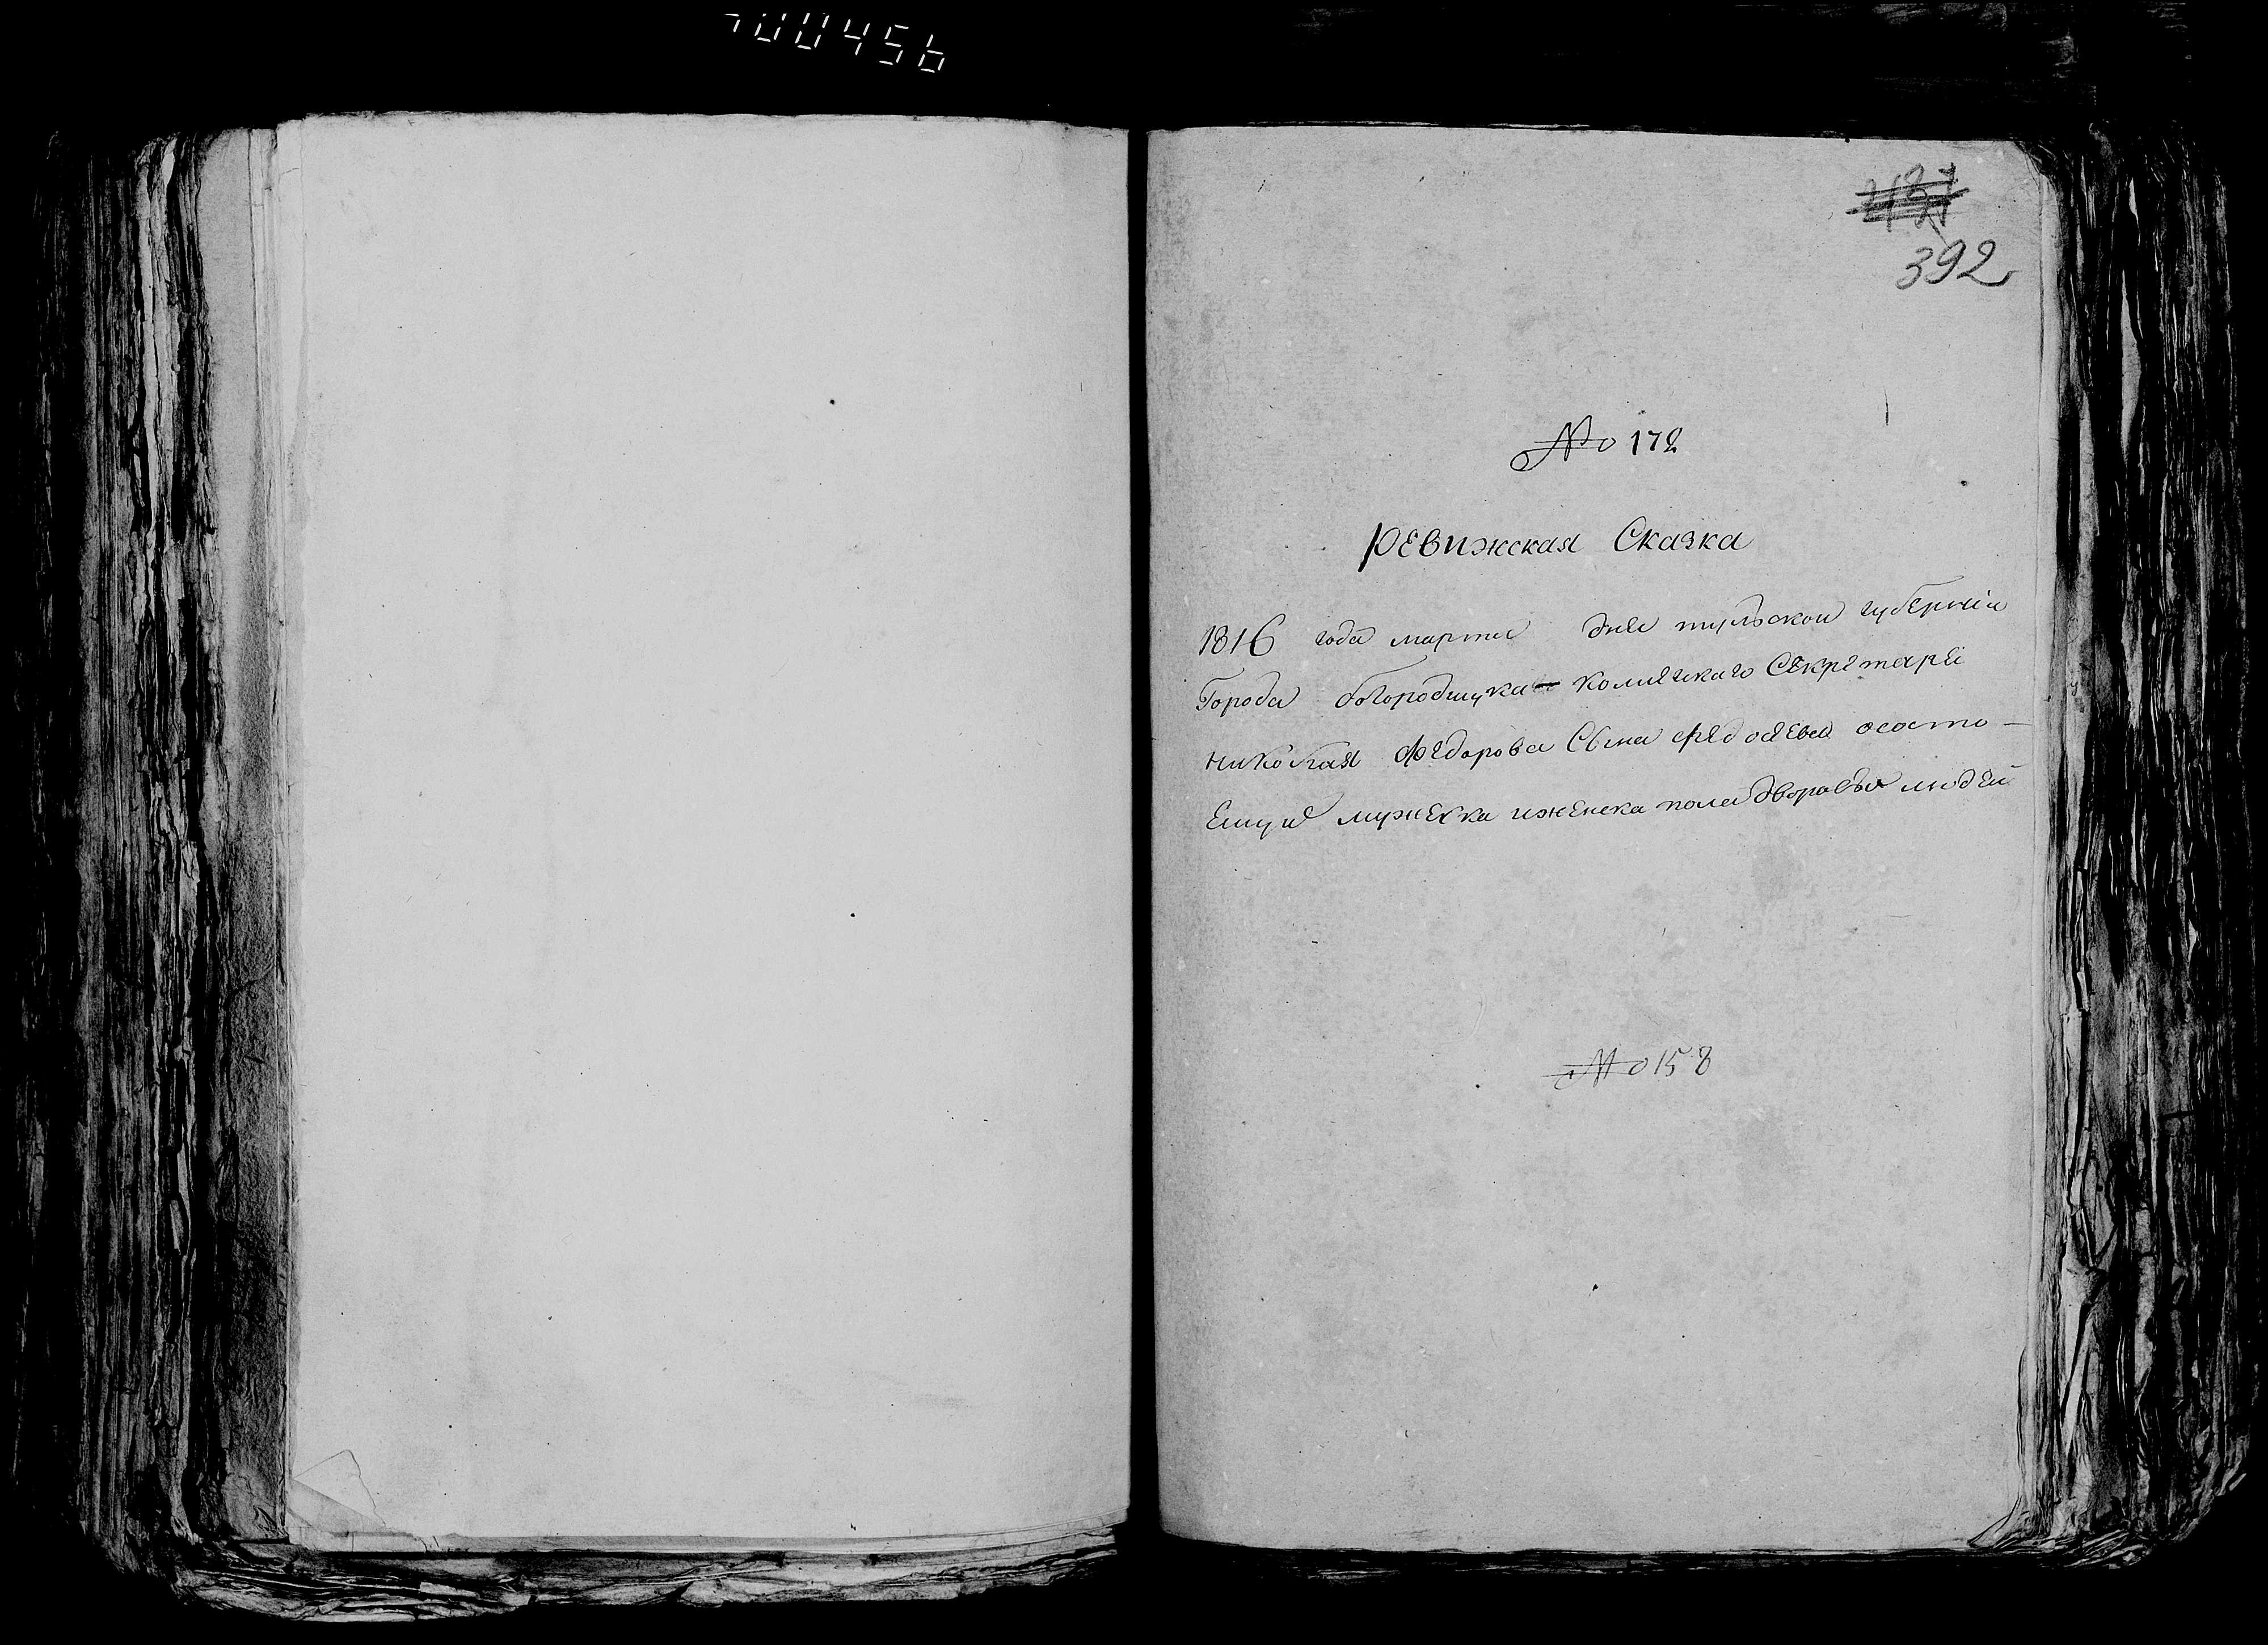 392
№ 172
Ревижская Сказка
1816 года марта дня тульской губернии
Города богородицка колижскаго Секретаря
николая Федорова Сына Федосеева ососто-
Ещие мужеска иженска пола дворовых людей
№ 158